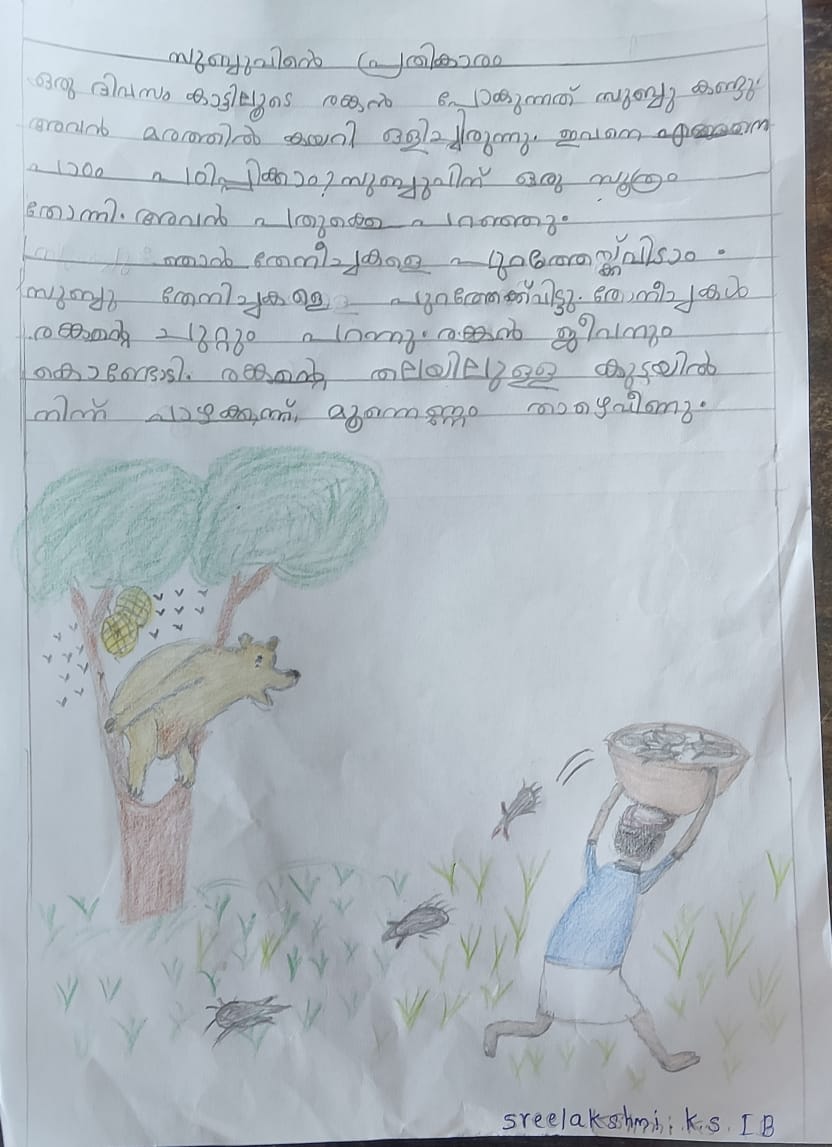 സുബ്ബുവിന്റെ പ്രതികാരം
ഒരു ദിവസം കാട്ടിലൂടെ രങ്കൻ പോകുന്നത് സുബ്ബു കണ്ടു.
അവൻ മരത്തിൽ കയറി ഒളിച്ചിരുന്നു. ഇവനെ എങ്ങനെ
പാഠം പഠിപ്പിക്കാം? സുബ്ബുവിന് ഒരു സൂത്രം
തോന്നി. അവൻ പതുക്കെ പറഞ്ഞു.
ഞാൻ തേനീച്ചകളെ പുറത്തേയ്ക്ക് വിടാം.
സുബ്ബു തേനീച്ചകളെ പുറത്തേക്ക് വിട്ടു. തേനീച്ചകൾ
രങ്കന്റെ ചുറ്റും പറന്നു. രങ്കൻ ജീവനും
കൊണ്ടോടി. രങ്കന്റെ തലയിലുള്ള കുട്ടയിൽ
നിന്ന് പഴക്കുന്ന് മൂന്നെണ്ണം താഴെവീണു.
sreelakshmi. K.S. I B